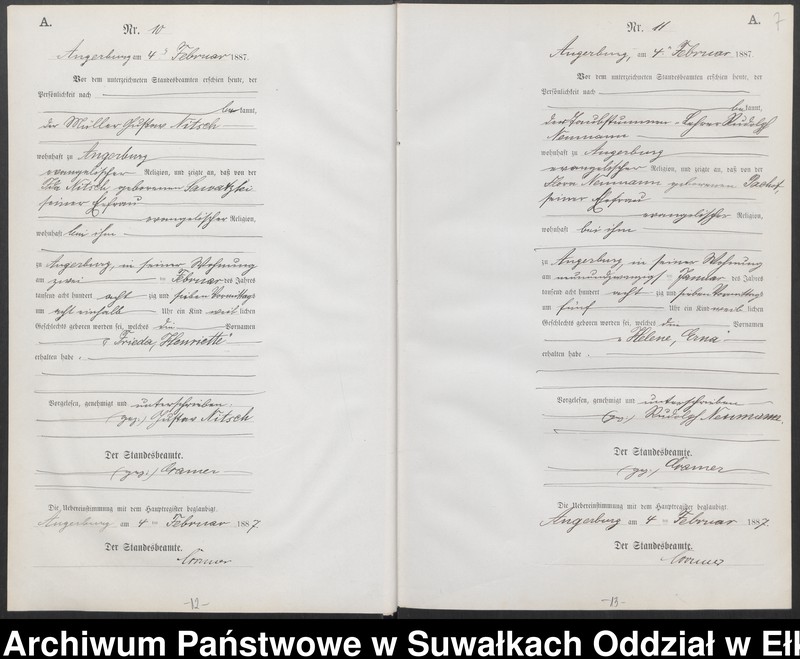 A.
Nr. 10
Angerburg am 4 Februar 1887.
Vor dem unterzeichneten Standesbeamten erschien heute, der
Persönlichkeit nach
bekannt,
der Müller Gustav Nitsch
wohnhaft zu Angerburg
evangelischer Religion, und zeigte an, daß von der
Nitsch, geborenen
seiner Ehefrau
evangelischer Religion,
wohnhaft bei ihm
zu Angerburg, in seiner Wohnung
am zwei ten Februar des Jahres
tausend acht hundert acht zig und sieben Vormittags
um acht einhalb Uhr ein Kind weiblichen
Geschlechts geboren worden sei, welches die Vornamen
Frieda, Henriette
erhalten habe.
Vorgelesen, genehmigt und unterschrieben.
(gez.) Gustav Nitsch
Der Standesbeamte.
(gez.) Cramer
Die Uebereinstimmung mit dem Hauptregister beglaubigt.
Angerburg am 4 ten Februar 1887.
Der Standesbeamte.
Cramer
-12-
A.
7
Nr. 11
Angerburg, am 4 Februar 1887.
Vor dem unterzeichneten Standesbeamten erschien heute, der
Persönlichkeit nach
bekannt,
der Taubstummen-Lehrer Rudolf
Neumann
wohnhaft zu Angerburg
evangelischer Religion, und zeigte an, daß von der
Neumann geborenen
seiner Ehefrau
evangelischer Religion,
wohnhaft bei ihm
zu Angerburg, in seiner Wohnung
am neunundzwanzigsten Januar des Jahres
tausend acht hundert acht zig und sieben Vormittags
um fünf Uhr ein Kind weiblichen
Geschlechts geboren worden sei, welches die Vornamen
Helene, Erna
erhalten habe.
Vorgelesen, genehmigt und unterschrieben
(gez.) Rudolf Neumann.
Der Standesbeamte.
(gez.) Cramer
Die Uebereinstimmung mit dem Hauptregister beglaubigt.
Angerburg am 4 ten Februar 1887.
Der Standesbeamte.
Cramer
-13-
Archiwum Państwowe w Suwałkach Oddział w Ełk